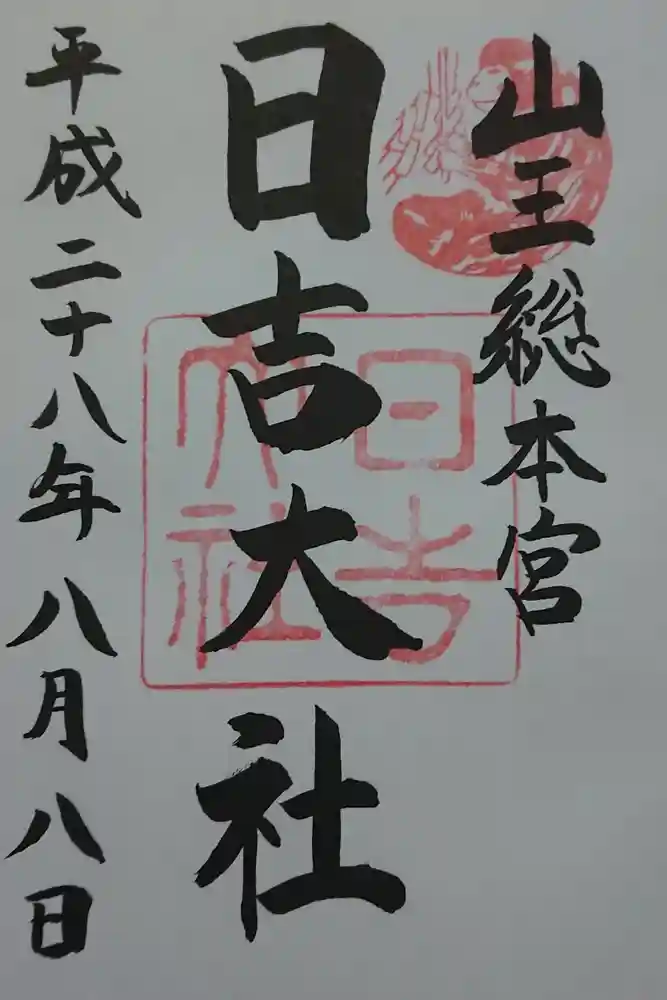 山王総本宮
日吉大社
日吉大社
平成二十八年八月八日